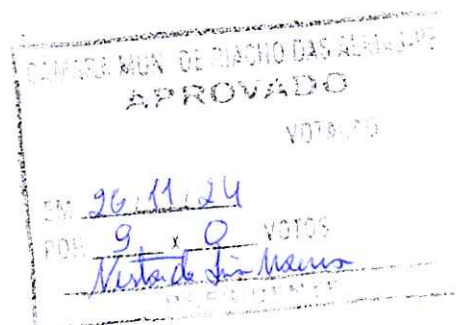 CÂMARA MUN. DE RIACHO DAS ALMAS-PE
APROVADO
VOTAÇÃO
EM 26/11/24
POR 9 x 0 VOTOS
PRESIDENTE